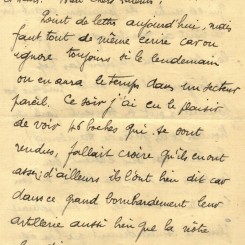 Bien chers Parents !
Point de lettre aujourd'hui, mais
faut tout de même écrire car on
ignore toujours si le lendemain
on en aura le temps dans un secteur
pareil. Ce soir j'ai eu le plaisir
de voir 46 boches qui se sont
rendus, fallait croire qu'ils en ont
assez d'ailleurs ils l'ont bien dit car
dans ce grand bombardement leur
artillerie aussi bien que la nôtre